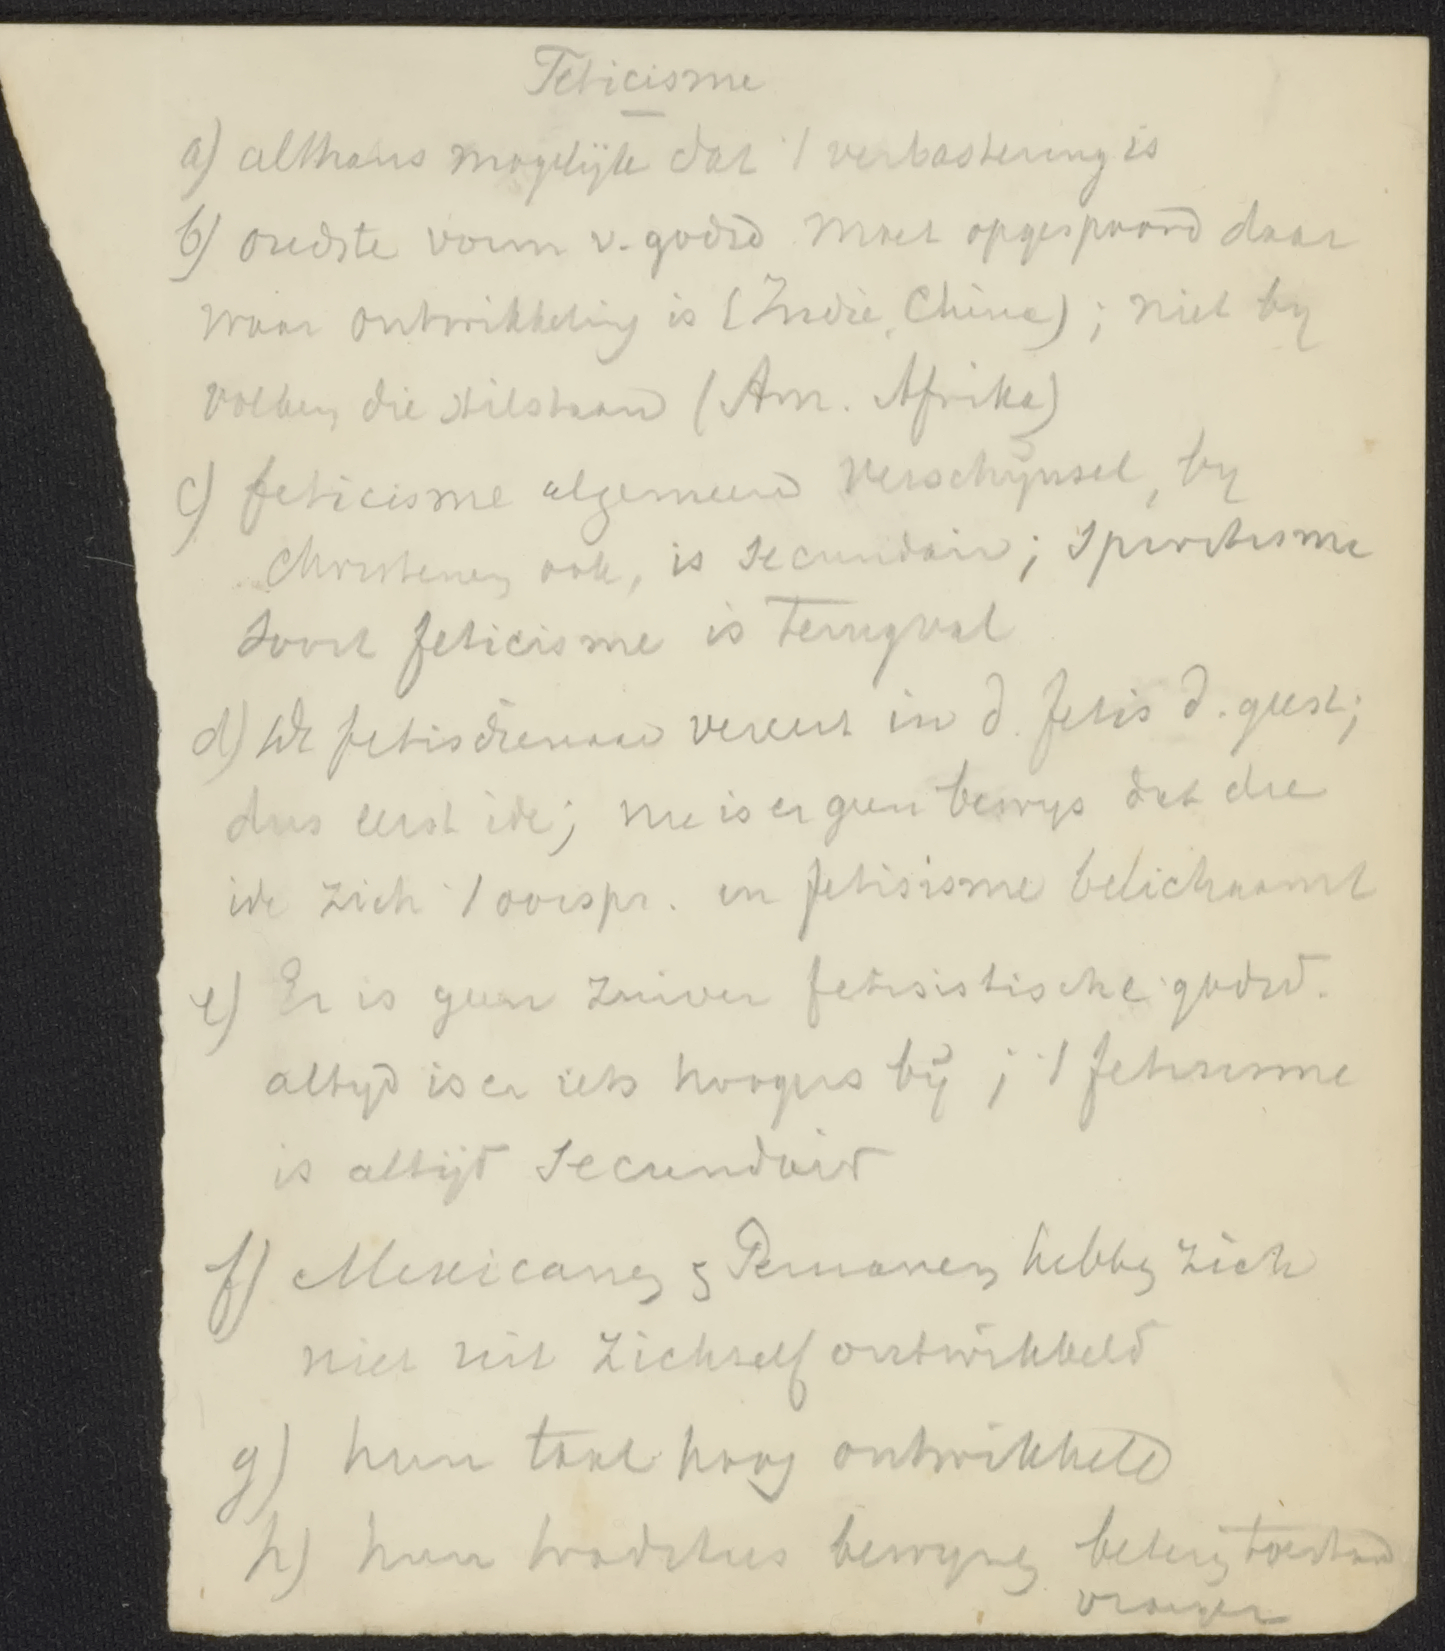 Feticisme
a) althans mogelijk dat 't verbastering is
b) oudste vorm v. godsd moet opgespoord daar
waar ontwikkeling is (Indie, China); niet by
volken die stilstaan (Am. Afrika)
c) feticisme algemeen verschijnsel, by
Christenen ook, is secundair; spiritisme
soort feticisme is terugval
d) De fetisdienaar vereert in d. fetis d. geest;
dus eerst ide; nu is er geen bewys dat die
ide zich 't oorspr. in fetisisme belichaamt
e) Er is geen zuiver fetisistische godsd.
altyd is er iets hoogers bij; 't fetisisme
is altijd secundair
f) Mexicanen & Peruanen hebben zich
niet uit zichzelf ontwikkeld
g) hun taal hoog ontwikkeld
h) hun tradities bewyzen beteren toestand
vroeger